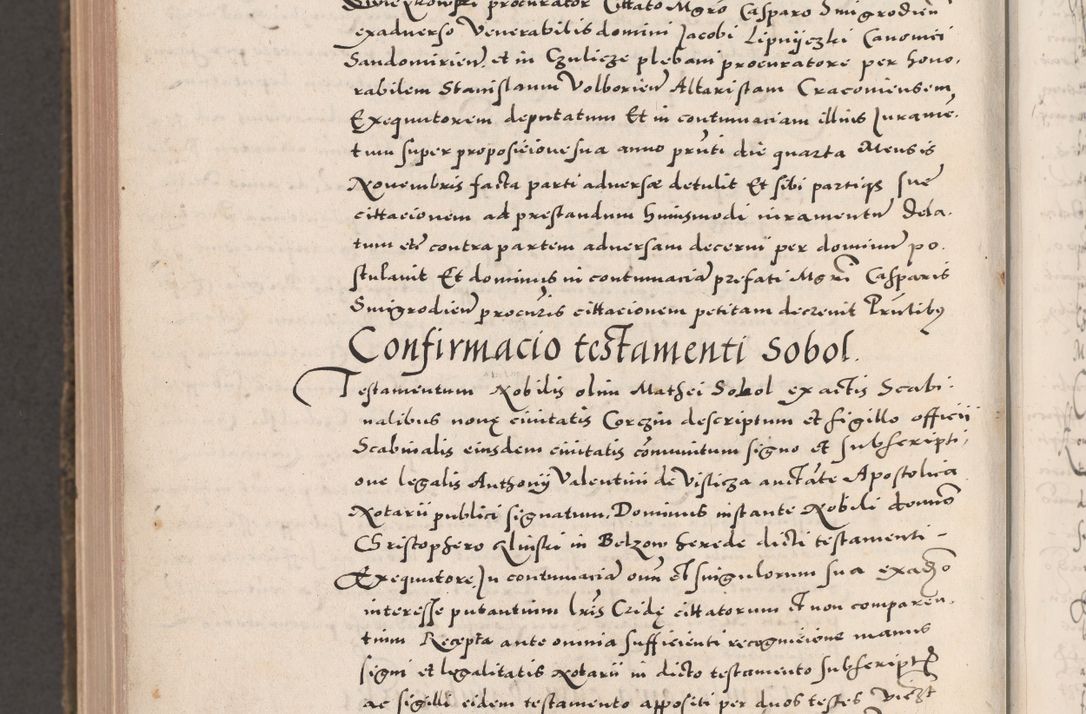 procurator Cittato Mgro Casparo Smigrodien̄
exaduerso Venerabilis domini Jacobi Lipnijczki Canonici
Sandomirien̄, et in Czulicze plebani procuratore per hono,
rabilem Stanislaum Volborien̄ Altaristam Craconiensem
Exequutorem deputatum Et in contumaciam illius Juramē,
tum super proposicione sua anno pn̄ti die quarta Mensis
Nouembris facta parti aduersæ detulit Et sibi partiqȝ suę
cittacionem ad prestandum huiusmodi iuramentū dela,
tum etc̄ contra partem aduersam decerni per dominū po,
stulauit Et dominus in contumaciā prefati Mgrī Casparis
Smigrodien̄ procur̄is cittacionem petitam decreuit Pn̄tibȝ
Confirmacio testamenti Sobol.
Testamentum Nobilis olim Mathei Sobol ex actis Scabi,
nalibus nouę ciuitatis Corczin descriptum et sigillo officii
Scabinalis eiusdem ciuitatis cōmunitum signo et subscripti,
one legalis Anthonij Valentini de Visticza auctāte Apostolica
Notarii publici signatum, Dominus instante Nobili domīo
Christophero Glinski in Belzow herede dicti testamenti -
Exequutore, In contumaciā om̄ et singulorum sua
interesse putantium lrīs Cridę cittatorum et non comparen,
tium Recepta ante omnia sufficienti recognicione manus
signi et legalitatis Notarii in dicto testamento
ac sigilli eidem testamento appositi per duos testes